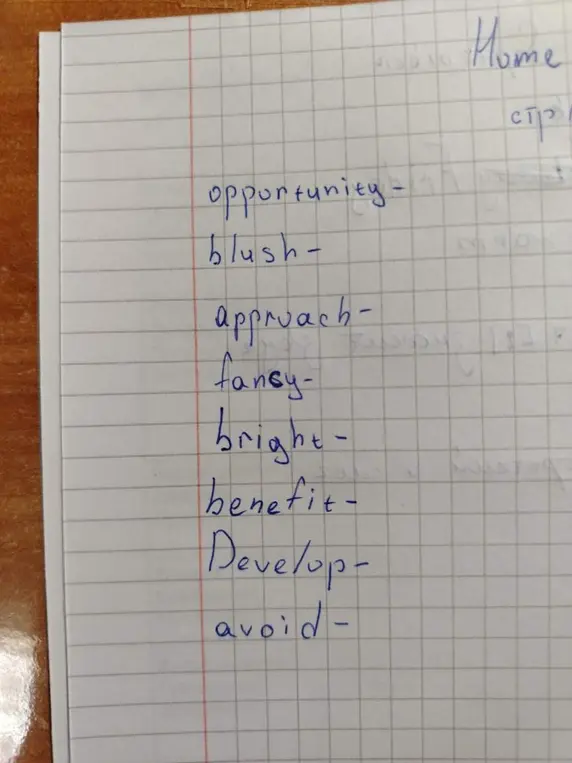 Home
стр
opportunity-
blush-
approach-
fancy-
bright-
benefit-
Develop-
avoid-